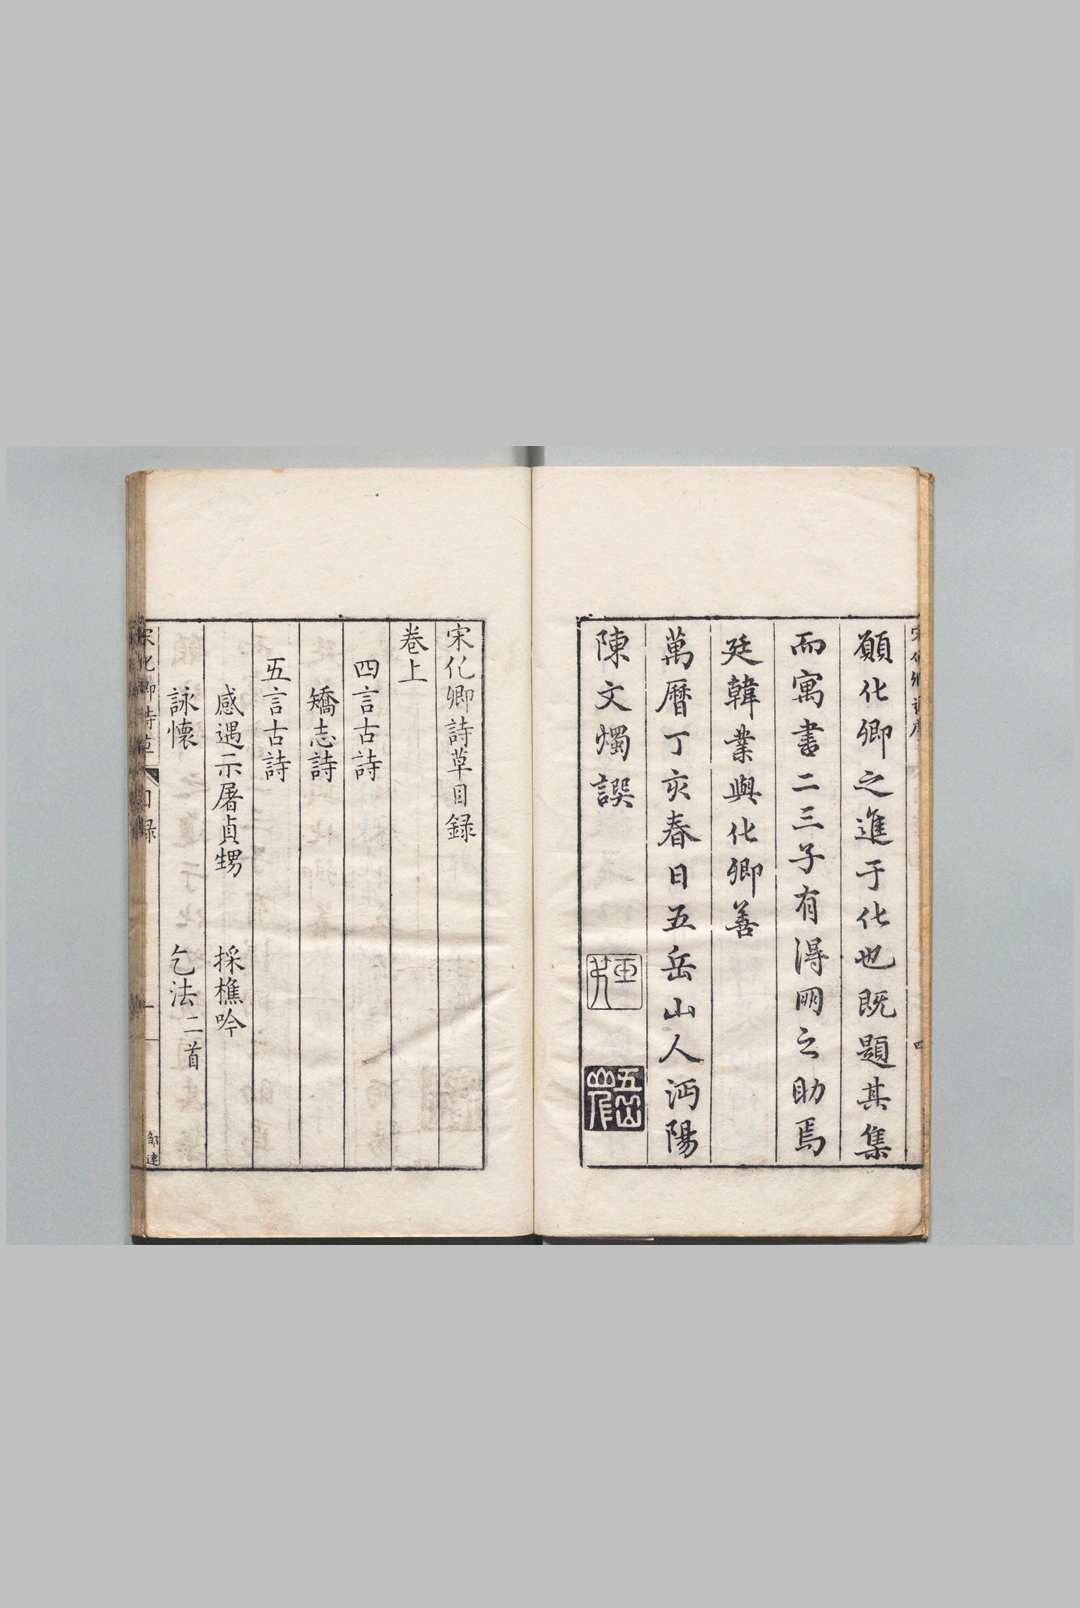 願化卿之進于化也既題其集
而寓書二三子有得朙之助焉
廷韓業與化卿善
萬曆丁亥春日五岳山人沔陽
陳文燭譔
宋化卿詩草目録
卷上
四言古詩
矯志詩
五言古詩
感遇示屠貞甥 採樵吟
詠懷 乞法二首
宋化卿詩草 目録 一